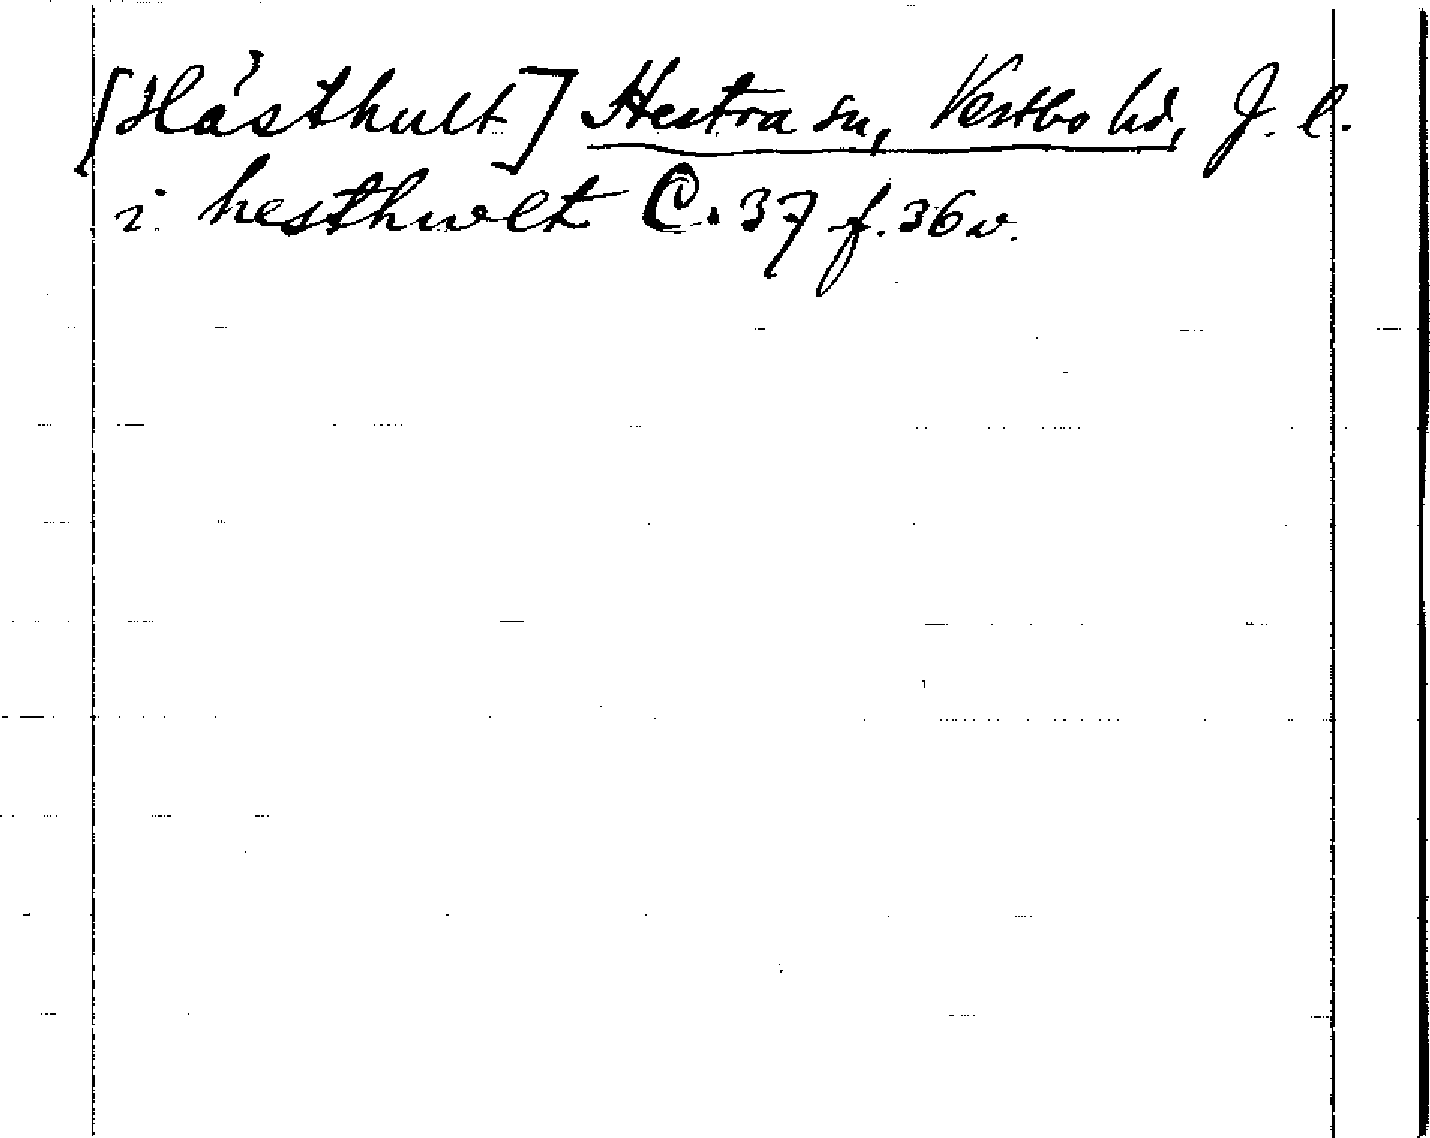 [Hästhult] Hestra sn, Vestbo hd, J. l.
i hesthwlt C. 37 f. 36 v.